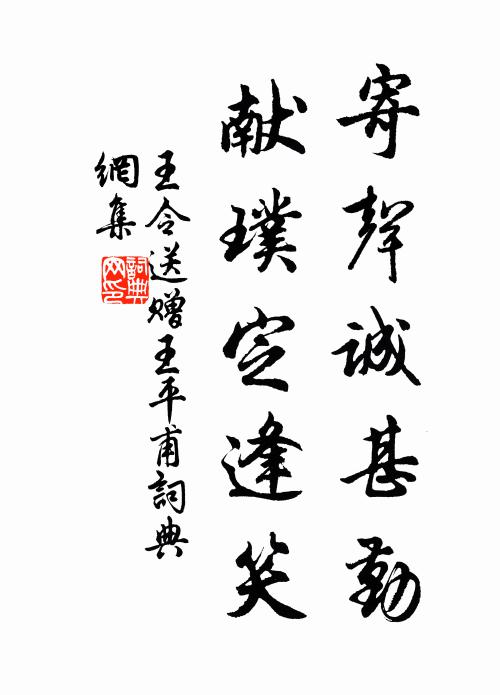 寄聲誠甚勤
献璞定逢笑
王令送赠王平甫詞典
網集
詞典網印